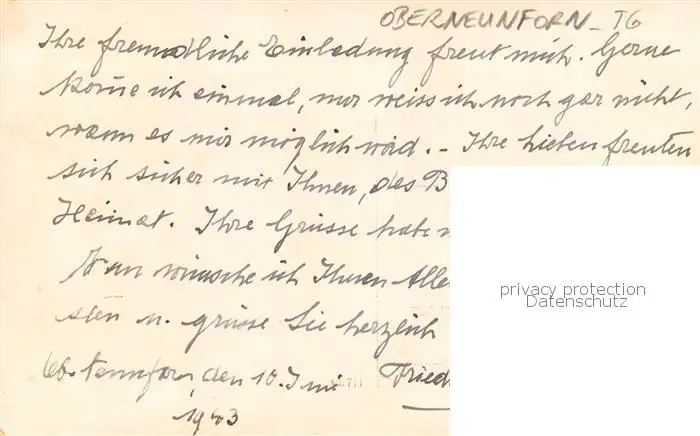 OBERNEUNFORN - TG
Ihre freundliche Einladung freut mich. Gerne
komme ich einmal, nur weiss ich noch gar nicht,
wann es mir möglich wird. - Ihre Lieben freuten
sich sicher mit Ihnen, des B
Heimat. Ihre Grüsse habe
Nun wünsche ich Ihnen Alle
sten u. grüsse Sie herzlich
den 10. Juni Fried
1943
privacy protection
Datenschutz